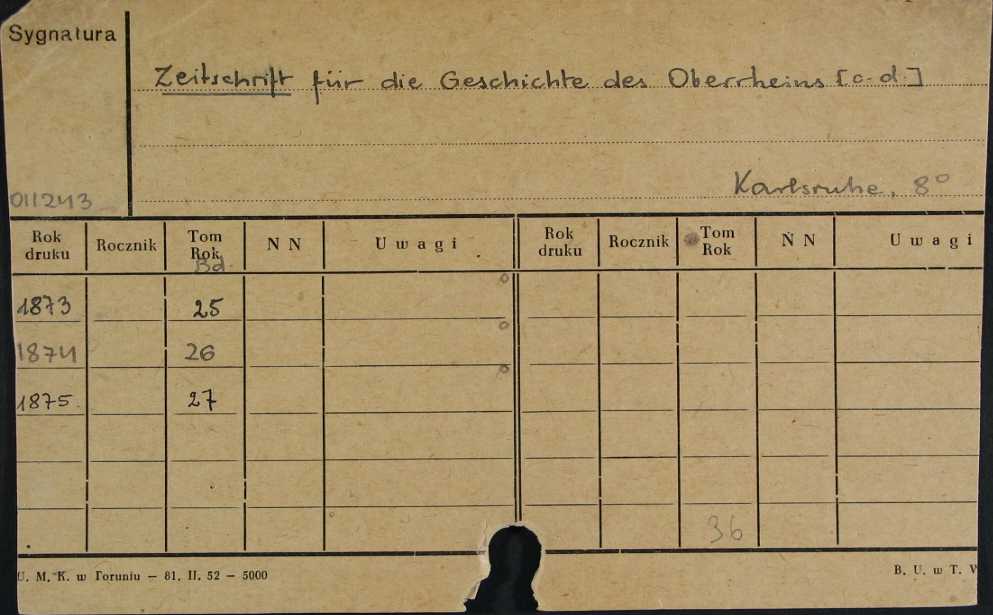 Sygnatura
Zeitschrift für die Geschichte des Oberrheins [c.d.]
Karlsruhe, 8°
011243
Rok druku Rocznik Tom Rok Bd. N N Uwagi Rok druku Rocznik Tom Rok N N Uwagi
1873 25
1874 26
1875. 27
36
U. M. K. w Toruniu — 81. II. 52 — 5000 B. U. w T.